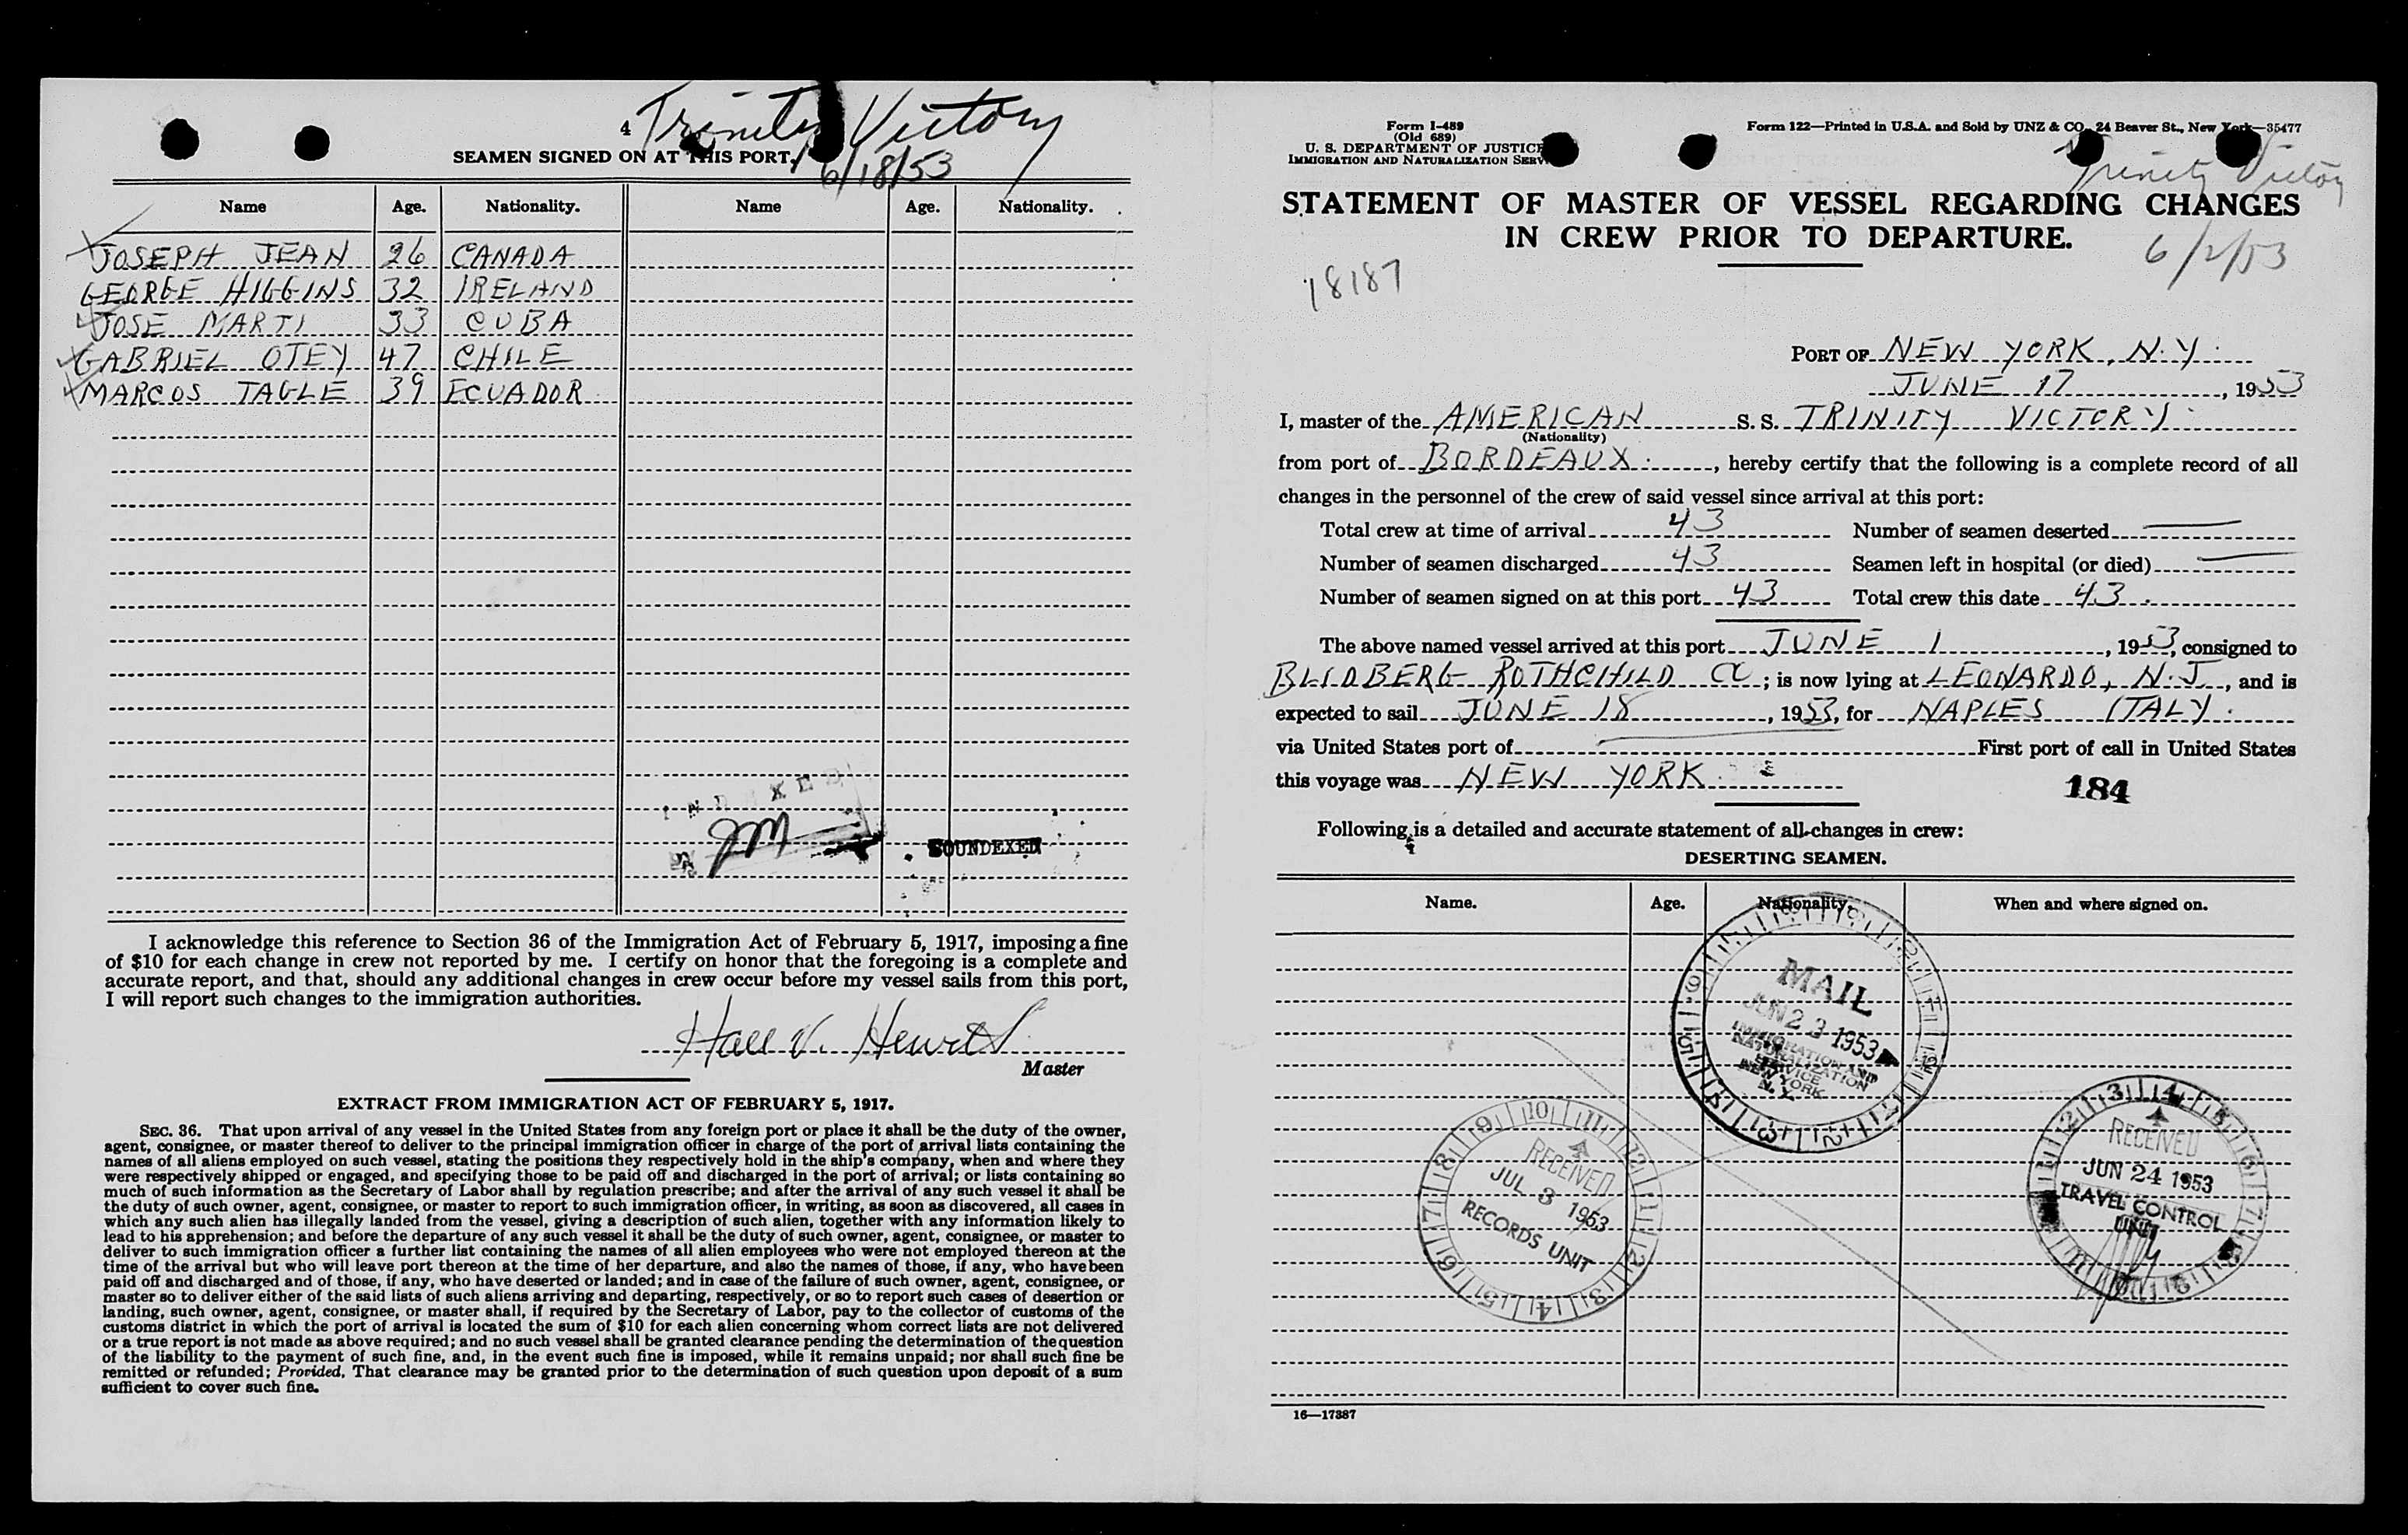 4 Trinity Victory
SEAMEN SIGNED ON AT THIS PORT.
6/18/53
Name Age. Nationality. Name Age. Nationality.
JOSEPH JEAN 26 CANADA
GEORGE HIGGINS 32 IRELAND
JOSE MARTI 33 CUBA
GABRIEL OTEY 47 CHILE
MARCOS TAGLE 39 ECUADOR
INDEXED
JM
SOUNDEXED
I acknowledge this reference to Section 36 of the Immigration Act of February 5, 1917, imposing a fine
of $10 for each change in crew not reported by me. I certify on honor that the foregoing is a complete and
accurate report, and that, should any additional changes in crew occur before my vessel sails from this port,
I will report such changes to the immigration authorities.
Hall V.
Master
EXTRACT FROM IMMIGRATION ACT OF FEBRUARY 5, 1917.
SEC. 36. That upon arrival of any vessel in the United States from any foreign port or place it shall be the duty of the owner,
agent, consignee, or master thereof to deliver to the principal immigration officer in charge of the port of arrival lists containing the
names of all aliens employed on such vessel, stating the positions they respectively hold in the ship's company, when and where they
were respectively shipped or engaged, and specifying those to be paid off and discharged in the port of arrival; or lists containing so
much of such information as the Secretary of Labor shall by regulation prescribe; and after the arrival of any such vessel it shall be
the duty of such owner, agent, consignee, or master to report to such immigration officer, in writing, as soon as discovered, all cases in
which any such alien has illegally landed from the vessel, giving a description of such alien, together with any information likely to
lead to his apprehension; and before the departure of any such vessel it shall be the duty of such owner, agent, consignee, or master to
deliver to such immigration officer a further list containing the names of all alien employees who were not employed thereon at the
time of the arrival but who will leave port thereon at the time of her departure, and also the names of those, if any, who have been
paid off and discharged and of those, if any, who have deserted or landed; and in case of the failure of such owner, agent, consignee, or
master so to deliver either of the said lists of such aliens arriving and departing, respectively, or so to report such cases of desertion or
landing, such owner, agent, consignee, or master shall, if required by the Secretary of Labor, pay to the collector of customs of the
customs district in which the port of arrival is located the sum of $10 for each alien concerning whom correct lists are not delivered
or a true report is not made as above required; and no such vessel shall be granted clearance pending the determination of the question
of the liability to the payment of such fine, and, in the event such fine is imposed, while it remains unpaid; nor shall such fine be
remitted or refunded; Provided, That clearance may be granted prior to the determination of such question upon deposit of a sum
sufficient to cover such fine.
Form I-489
(Old 689)
U. S. DEPARTMENT OF JUSTICE
IMMIGRATION AND NATURALIZATION SERV
Form 122—Printed in U.S.A. and Sold by UNZ & CO., 24 Beaver St., New York—35477
Trinity Victory
STATEMENT OF MASTER OF VESSEL REGARDING CHANGES
IN CREW PRIOR TO DEPARTURE.
6/2/53
18187
PORT OF NEW YORK, N.Y.
JUNE 17, 1953
I, master of the AMERICAN S. S. TRINITY VICTORY
(Nationality)
from port of BORDEAUX, hereby certify that the following is a complete record of all
changes in the personnel of the crew of said vessel since arrival at this port:
Total crew at time of arrival 43 Number of seamen deserted
Number of seamen discharged 43 Seamen left in hospital (or died)
Number of seamen signed on at this port 43 Total crew this date 43
The above named vessel arrived at this port JUNE 1, 1953, consigned to
BLIDBERG ROTHCHILD CO; is now lying at LEONARDO, N.J., and is
expected to sail JUNE 18, 1953, for NAPLES ITALY.
via United States port of First port of call in United States
this voyage was NEW YORK
184
Following is a detailed and accurate statement of all changes in crew:
DESERTING SEAMEN.
Name. Age. Nationality. When and where signed on.
MAIL
JUN 23 1953
IMMIGRATION AND
NATURALIZATION
SERVICE
NEW YORK
N. Y.
RECEIVED
JUL 3 1953
RECORDS UNIT
RECEIVED
JUN 24 1953
TRAVEL CONTROL
UNIT
16—17387